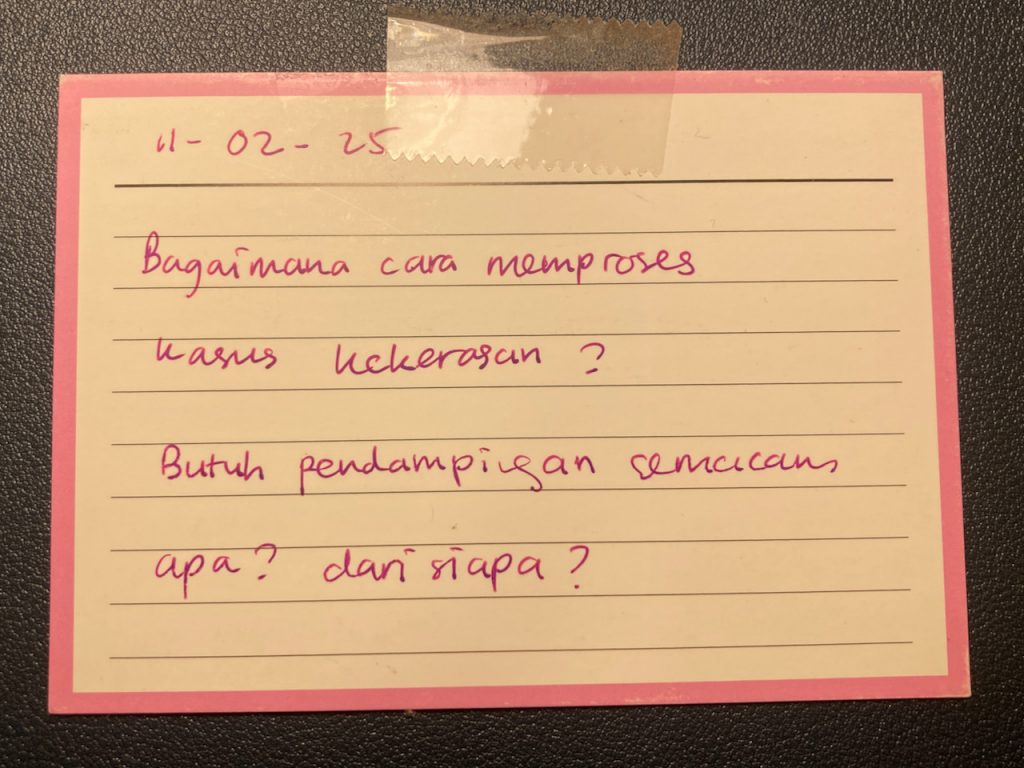 11-02-25
Bagaimana cara memproses
kasus kekerasan?
Butuh pendampingan semacam
apa? dari siapa?